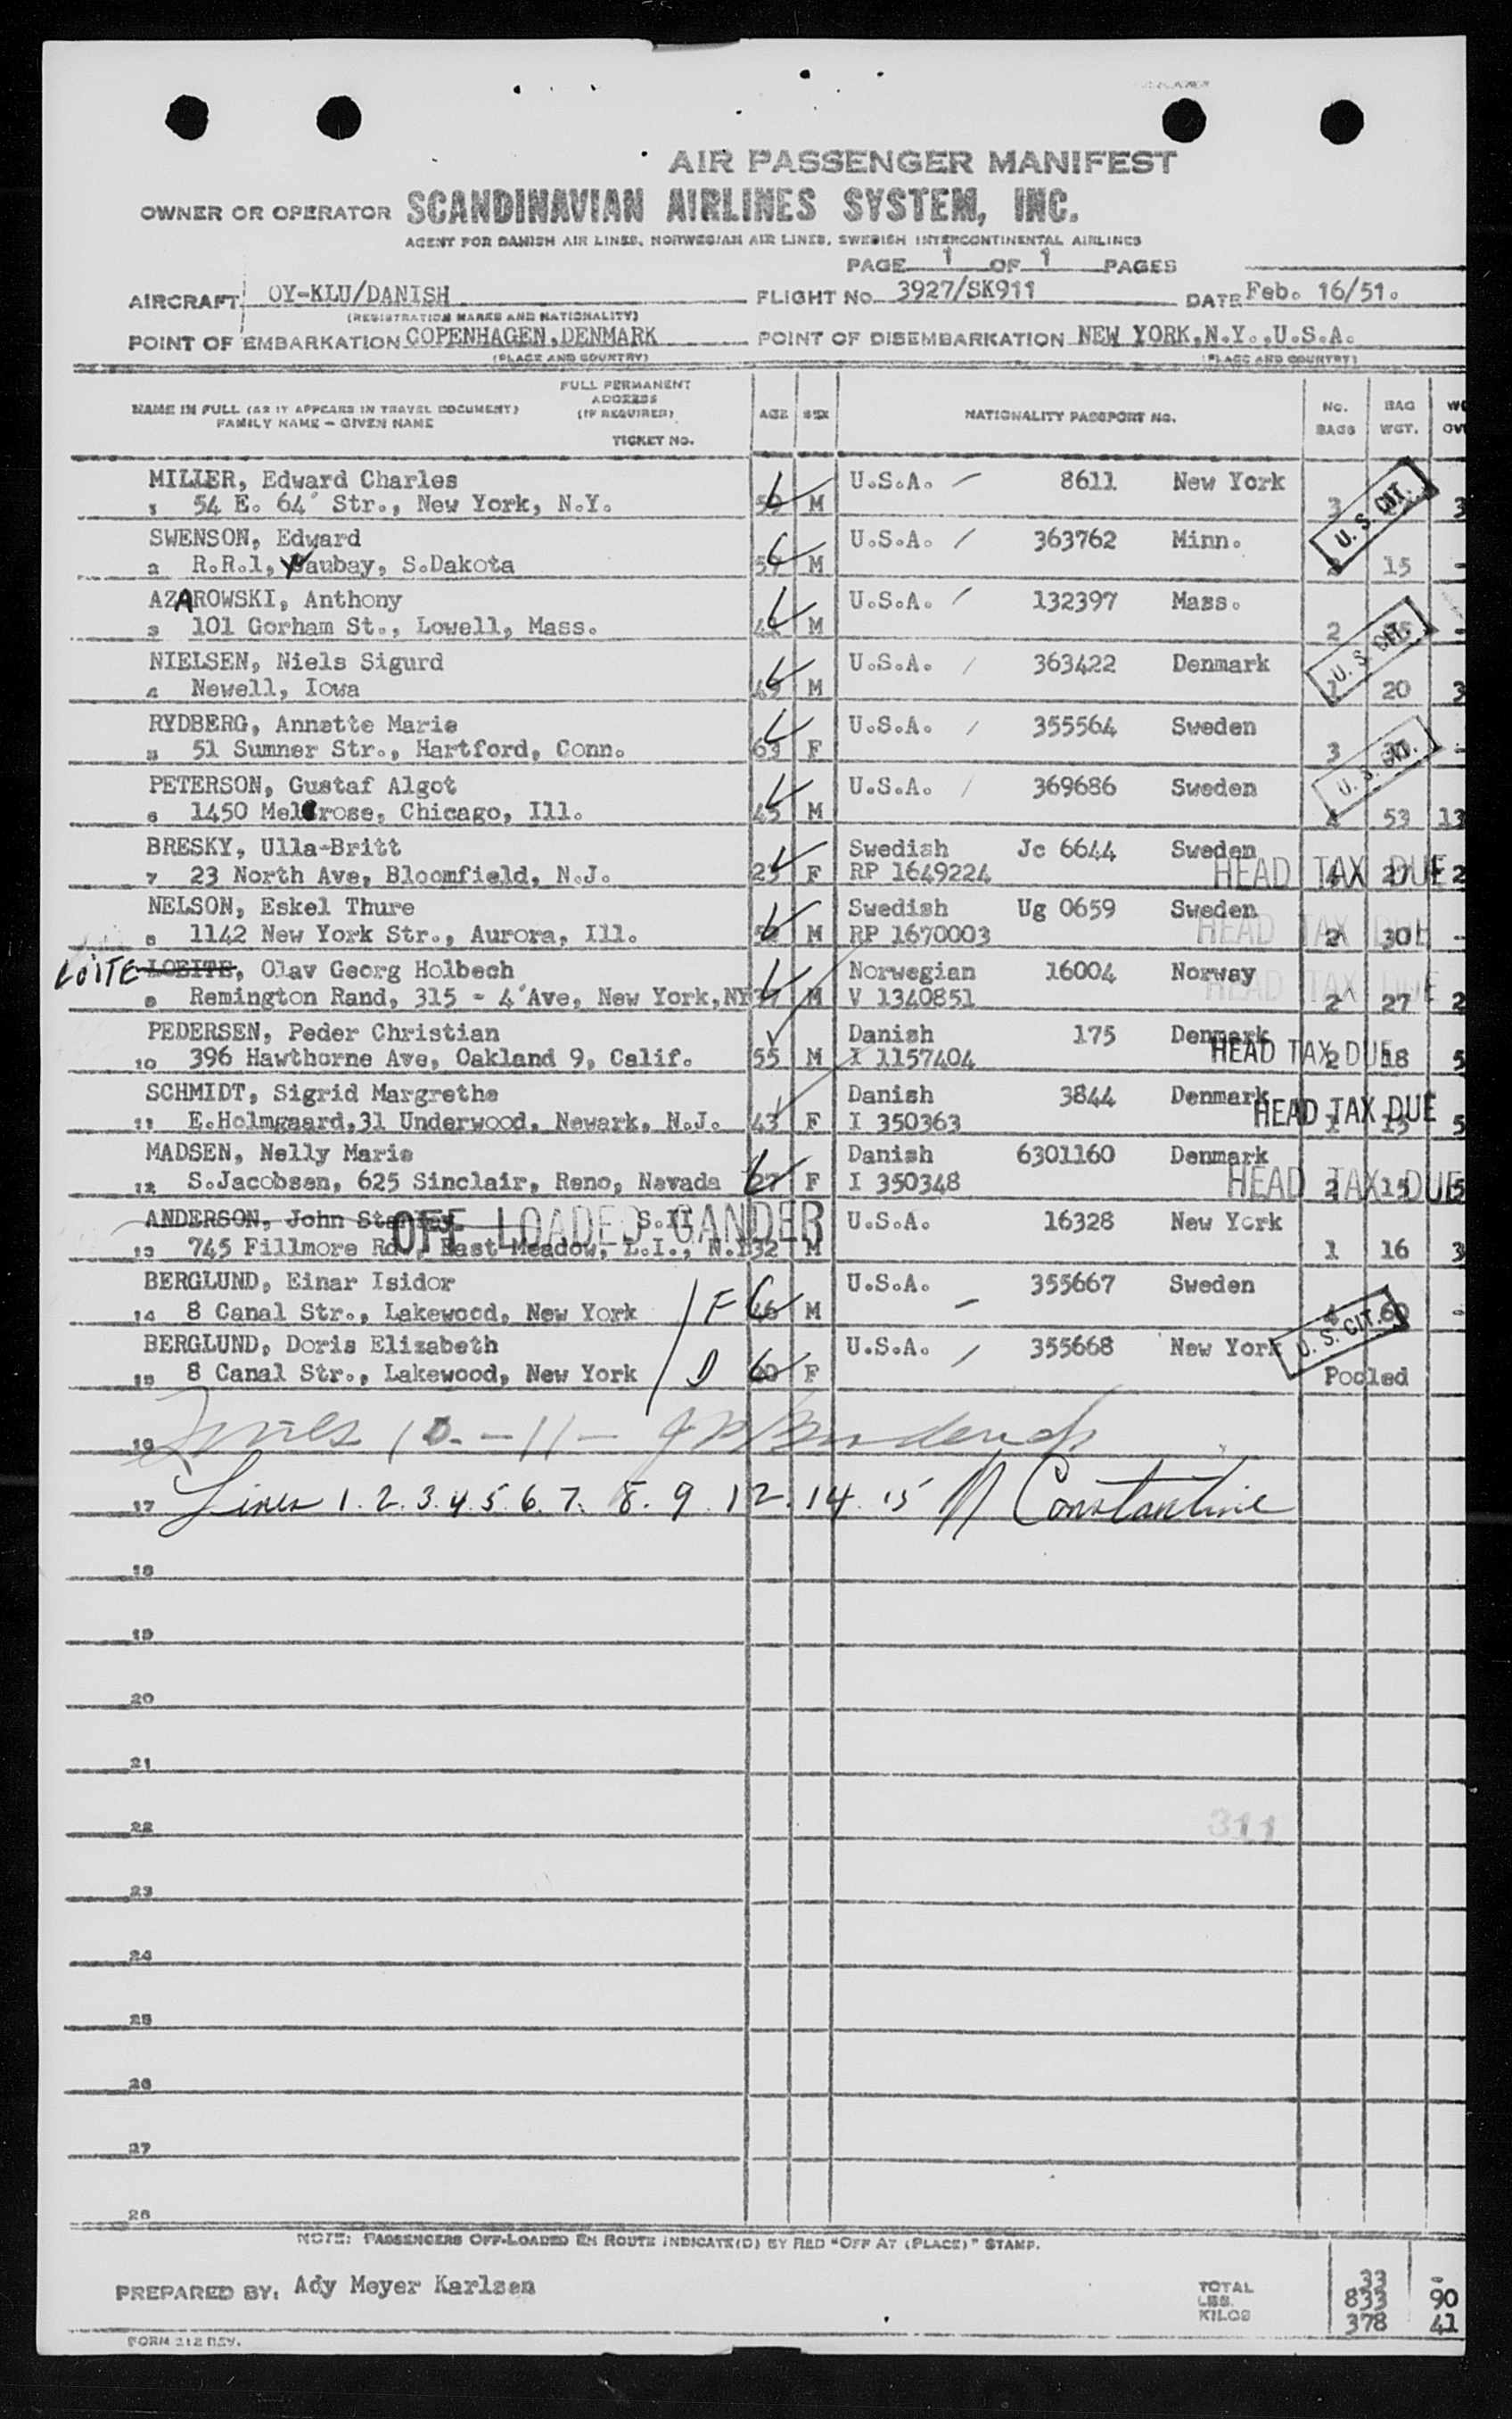 AIR PASSENGER MANIFEST
OWNER OR OPERATOR SCANDINAVIAN AIRLINES SYSTEM, INC.
AGENT FOR DANISH AIR LINES, NORWEGIAN AIR LINES, SWEDISH INTERCONTINENTAL AIRLINES
PAGE 1 OF 1 PAGES
AIRCRAFT OY-KLU/DANISH FLIGHT NO. 3927/SK911 DATE Feb. 16/51.
(REGISTRATION MARKS AND NATIONALITY)
POINT OF EMBARKATION COPENHAGEN, DENMARK POINT OF DISEMBARKATION NEW YORK, N.Y., U.S.A.
(PLACE AND COUNTRY) (PLACE AND COUNTRY)
NAME IN FULL (AS IT APPEARS IN TRAVEL DOCUMENT) FAMILY NAME - GIVEN NAME FULL PERMANENT ADDRESS (IF REQUIRED) TICKET NO. AGE SEX NATIONALITY PASSPORT NO. NO. BAGS BAG WGT.
MILLER, Edward Charles U.S.A. 8611 New York
1 54 E. 64' Str., New York, N.Y. M 3 U.S. CIT. 3
SWENSON, Edward U.S.A. 363762 Minn.
2 R.R.1, Waubay, S.Dakota 57 M 15 -
AZAROWSKI, Anthony U.S.A. 132397 Mass.
3 101 Gorham St., Lowell, Mass. M 2 U.S. CIT. -
NIELSEN, Niels Sigurd U.S.A. 363422 Denmark
4 Newell, Iowa 49 M 1 20 3
RYDBERG, Annette Marie U.S.A. 355564 Sweden
5 51 Sumner Str., Hartford, Conn. 63 F 3 U.S. CIT. -
PETERSON, Gustaf Algot U.S.A. 369686 Sweden
6 1450 Melrose, Chicago, Ill. 45 M 53 13
BRESKY, Ulla-Britt Swedish Jc 6644 Sweden
7 23 North Ave, Bloomfield, N.J. 23 F RP 1649224 HEAD TAX DUE 4 27 2
NELSON, Eskel Thure Swedish Ug 0659 Sweden
8 1142 New York Str., Aurora, Ill. M RP 1670003 HEAD TAX DUE 2 30 -
LOITE LOEITE, Olav Georg Holbech Norwegian 16004 Norway
9 Remington Rand, 315 - 4'Ave, New York, NY M V 1340851 HEAD TAX DUE 2 27 2
PEDERSEN, Peder Christian Danish 175 Denmark
10 396 Hawthorne Ave, Oakland 9, Calif. 55 M I 1157404 HEAD TAX DUE 2 18 5
SCHMIDT, Sigrid Margrethe Danish 3844 Denmark
11 E.Holmgaard, 31 Underwood, Newark, N.J. 43 F I 350363 HEAD TAX DUE 1 15 5
MADSEN, Nelly Marie Danish 6301160 Denmark
12 S.Jacobsen, 625 Sinclair, Reno, Nevada 27 F I 350348 HEAD TAX DUE 2 15 5
ANDERSON, John Stanley U.S.A. 16328 New York
OFF LOADED GANDER
13 745 Fillmore Rd., East Meadow, L.I., N.Y. 32 M 1 16 3
BERGLUND, Einar Isidor U.S.A. 355667 Sweden
14 8 Canal Str., Lakewood, New York F 46 M 4 60 -
BERGLUND, Doris Elizabeth U.S.A. 355668 New York U.S. CIT.
15 8 Canal Str., Lakewood, New York D F Pooled
16 Lines 10 - 11 -
17 Lines 1. 2. 3. 4. 5. 6. 7. 8. 9. 12. 14. 15 N Constantine
18
19
20
21
22 311
23
24
25
26
27
28
NOTE: PASSENGERS OFF-LOADED EN ROUTE INDICATE(D) BY RED "OFF AT (PLACE)" STAMP.
PREPARED BY: Ady Meyer Karlsen
TOTAL 33 -
LBS. 833 90
KILOS 378 41
FORM 212 REV.